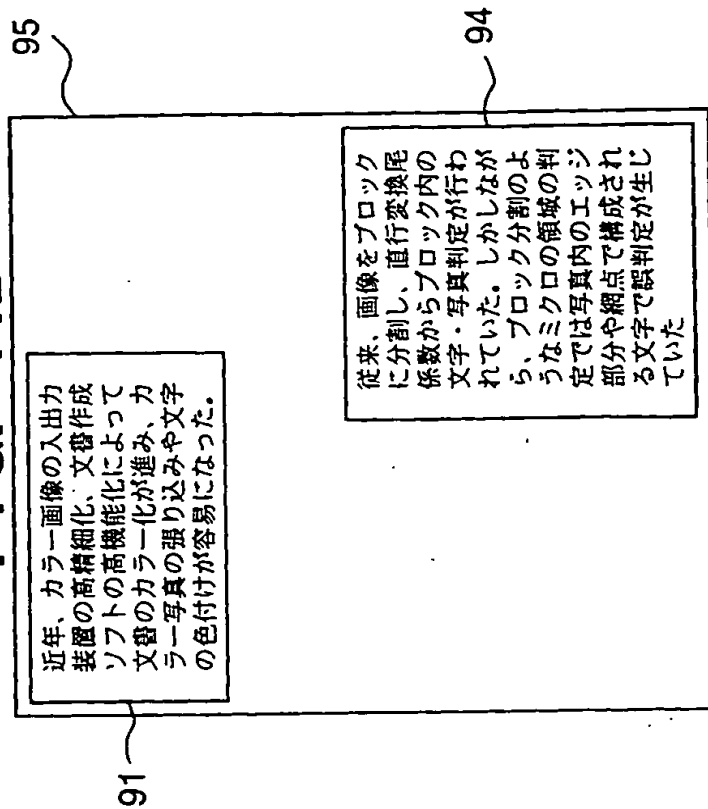 91
近年、カラー画像の入出力
装置の高精細化、文書作成
ソフトの高機能化によって
文書のカラー化が進み、カ
ラー写真の張り込みや文字
の色付けが容易になった。
95
従来、画像をブロック
に分割し、直行変換尾
係数からブロック内の
文字・写真判定が行わ
れていた。しかしなが
ら、ブロック分割のよ
うなミクロの領域の判
定では写真内のエッジ
部分や網点で構成され
る文字で誤判定が生じ
ていた
94